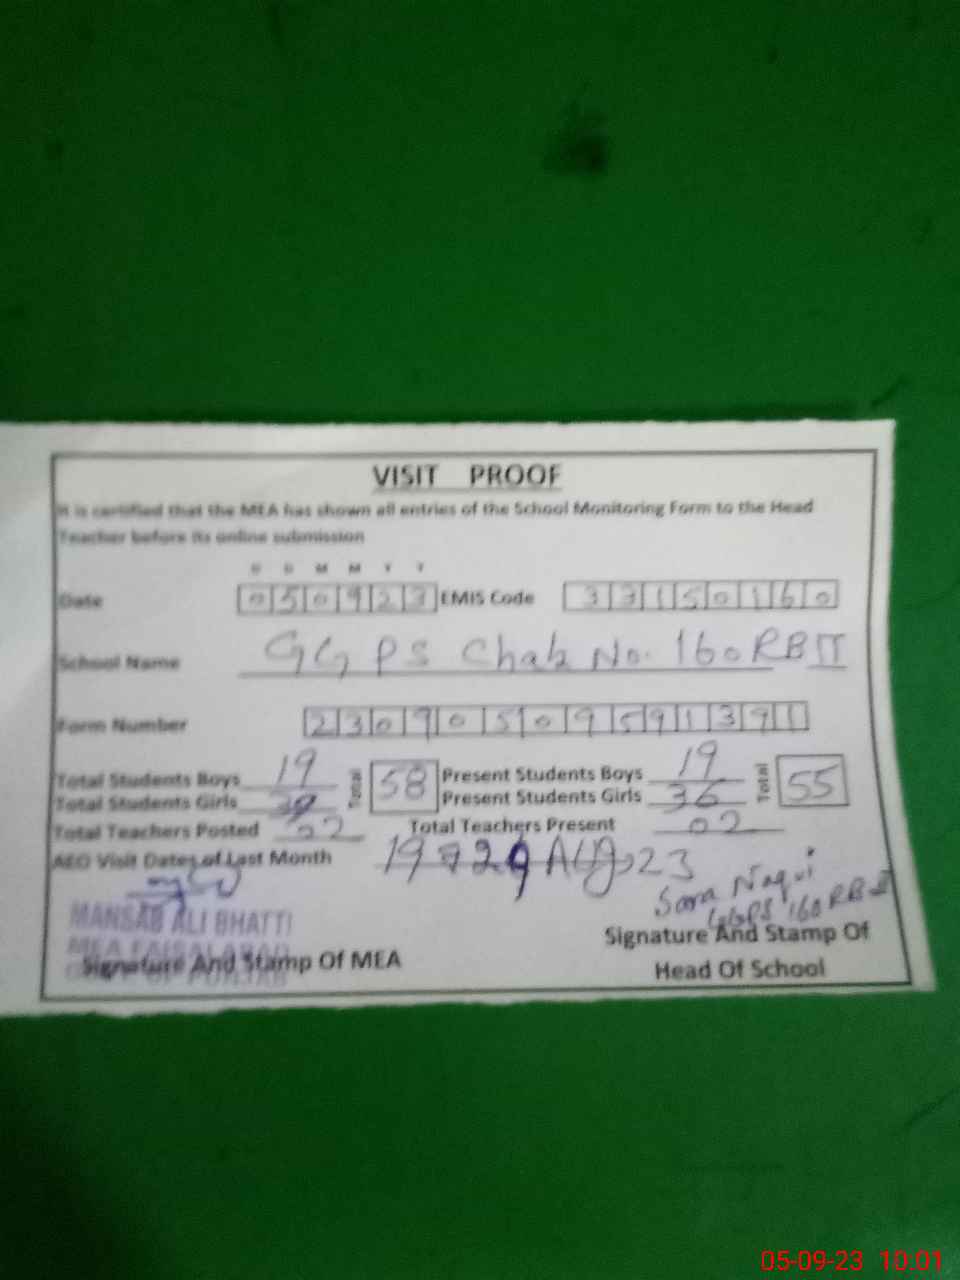 VISIT PROOF
It is certified that the MEA has shown all entries of the School Monitoring Form to the Head
Teacher before its online submission
D D M M Y Y
Date 050923 EMIS Code 33150160
School Name GGPS Chak No. 160RBII
Form Number 23090509591391
Total Students Boys 19 Total 58 Present Students Boys 19 Total 55
Total Students Girls Present Students Girls 36
Total Teachers Posted 02 Total Teachers Present 02
AEO Visit Dates of Last Month 19 Aug, 23
Sara Naqvi
GGPS 160 RB II
MANSAB ALI BHATTI
MEA FAISALABAD
OF PUNJAB
Signature And Stamp Of MEA
Signature And Stamp Of
Head Of School
05-09-23 10:01